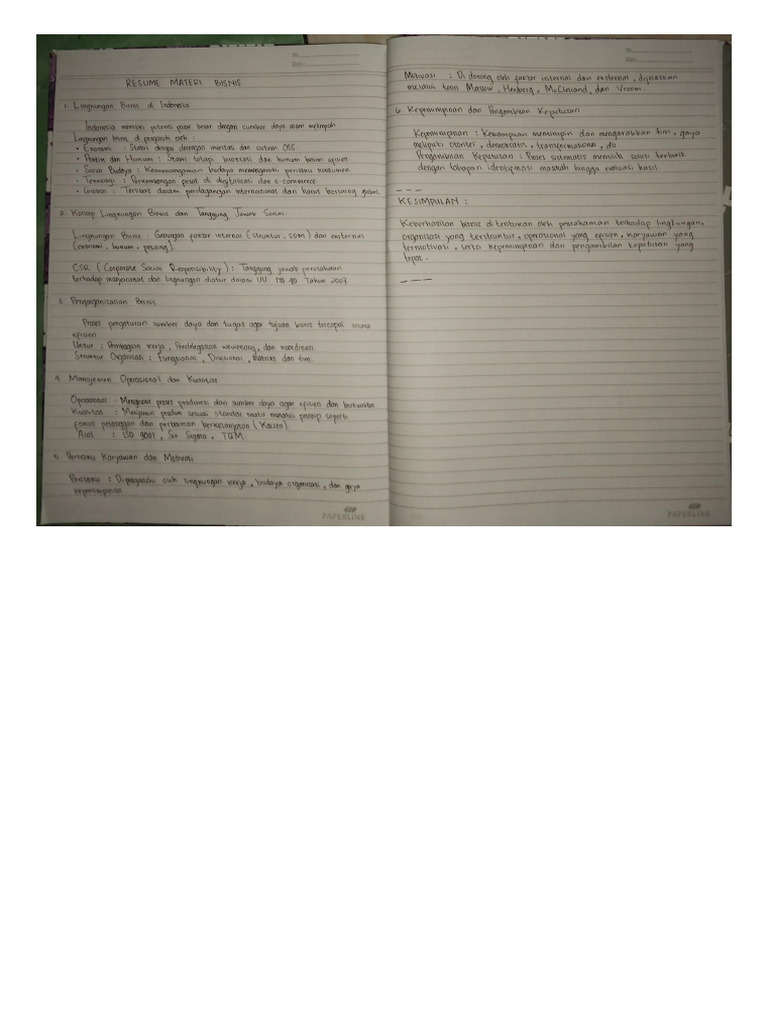 No.
Date:
RESUME MATERI BISNIS
1. Lingkungan Bisnis di Indonesia
Indonesia memiliki potensi pasar besar dengan sumber daya alam melimpah
Lingkungan bisnis di pengaruhi oleh :
• Ekonomi : Stabil dengan dorongan investasi dan sistem OSS.
• Politik dan Hukum : Stabil tetapi birokrasi dan hukum belum efisien.
• Sosial Budaya : Keanekaragaman budaya memengaruhi perilaku konsumen.
• Teknologi : Perkembangan pesat di digitalisasi dan e-commerce
• Global : Terlibat dalam perdagangan internasional dan harus bersaing global.
2. Konsep Lingkungan Bisnis dan Tanggung Jawab Sosial
Lingkungan Bisnis : Gabungan faktor internal (struktur, SDM) dan eksternal
(ekonomi, hukum, pesaing)
CSR (Corporate Social Responsibility) : Tanggung jawab perusahaan
terhadap masyarakat dan lingkungan diatur dalam UU No 40 Tahun 2007
3. Pengorganisasian Bisnis
Proses pengaturan sumber daya dan tugas agar tujuan bisnis tercapai secara
efisien.
Unsur : Pembagian kerja, Pendelegasian wewenang, dan koordinasi.
Struktur Organisasi : Fungsional, Divisional, matriks dan tim.
4. Manajemen Operasional dan Kualitas
Operasional : Mengelola proses produksi dan sumber daya agar efisien dan berkualitas
Kualitas : Menjamin produk sesuai standar mutu melalui prinsip seperti
fokus pelanggan dan perbaikan berkelanjutan (Kaizen)
Alat : ISO 9001, Six Sigma, TQM.
5. Perilaku Karyawan dan Motivasi
Perilaku : Dipengaruhi oleh lingkungan kerja, budaya organisasi, dan gaya
kepemimpinan
PAPERLINE
No.
Date:
Motivasi : Di dorong oleh faktor internal dan eksternal, dijelaskan
melalui teori Maslow, Herzberg, McClelland, dan Vroom.
6. Kepemimpinan dan Pengambilan Keputusan
Kepemimpinan : Kemampuan memimpin dan mengarahkan tim, gaya
meliputi otoriter, demokratis, transformasional, dll
Pengambilan Keputusan : Proses sistematis memilih solusi terbaik
dengan tahapan identifikasi masalah hingga evaluasi hasil.
---
KESIMPULAN :
Keberhasilan bisnis ditentukan oleh pemahaman terhadap lingkungan,
organisasi yang terstruktur, operasional yang efisien, karyawan yang
termotivasi, serta kepemimpinan dan pengambilan keputusan yang
tepat.
---
PAPERLINE